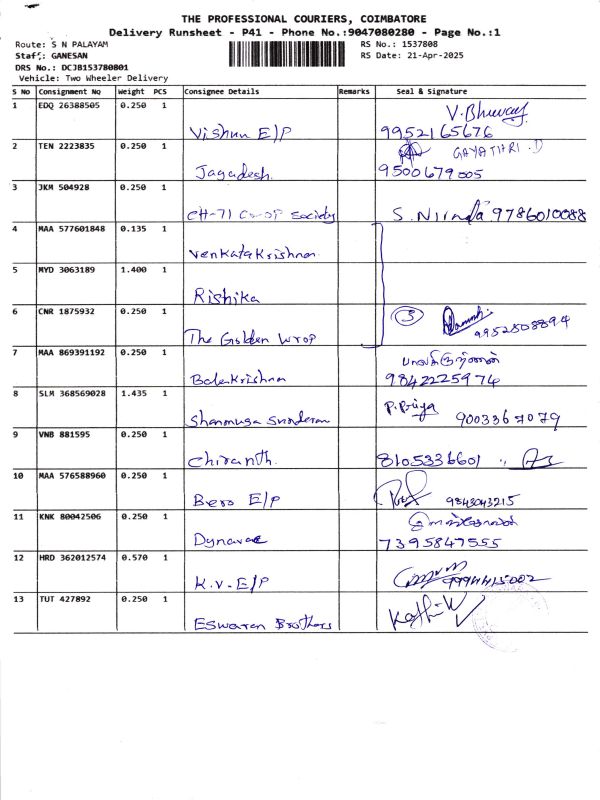 THE PROFESSIONAL COURIERS, COIMBATORE
Delivery Runsheet - P41 - Phone No.:9047080280 - Page No.:1
Route: S N PALAYAM
Staff: GANESAN
DRS No.: DCJB153780801
Vehicle: Two Wheeler Delivery
RS No.: 1537808
RS Date: 21-Apr-2025
S No Consignment No Weight PCS Consignee Details Remarks Seal & Signature
1 EDQ 26388505 0.250 1 V. Bhuvan
Vishnu E/P 9952165676
2 TEN 2223835 0.250 1 GAYATHRI . D
Jagadesh 9500679005
3 JKM 504928 0.250 1
CH-71 Co-op Society S. Nirmala 9786010088
4 MAA 577601848 0.135 1
Venkatakrishnan
5 MYD 3063189 1.400 1
Rishika
6 CNR 1875932 0.250 1 3
The Golden Wrop 9952508894
7 MAA 869391192 0.250 1 பாலகிருஷ்ணன்
Balakrishna 9842225974
8 SLM 368569028 1.435 1 P. Priya
Shanmuga Sunderam 9003367079
9 VNB 881595 0.250 1
Chiranth. 8105336601
10 MAA 576588960 0.250 1
Bero E/P 9843043215
11 KNK 80042506 0.250 1
Dynavac 7395847555
12 HRD 362012574 0.570 1
K.V. E/P 9994415002
13 TUT 427892 0.250 1
Eswaran Brothers